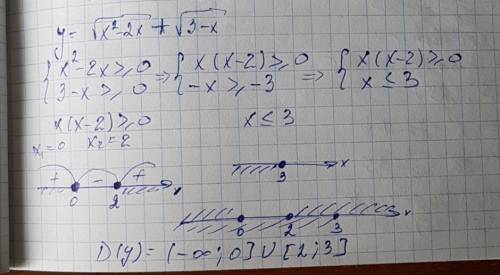 y = √(x²-2x) + √(3-x)
{ x²-2x ≥ 0 ⇒ { x(x-2) ≥ 0 ⇒ { x(x-2) ≥ 0
{ 3-x ≥ 0 { -x ≥ -3 { x ≤ 3
x(x-2) ≥ 0 x ≤ 3
x₁=0 x₂=2
+ - + x
0 2
x
3
x
0 2 3
D(y) = (-∞; 0] ∪ [2; 3]